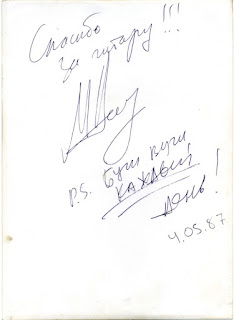 Спасибо
за гитару!!!
P.S. Буги Вуги
КАЖДЫЙ
ДЕНЬ!
4.05.87